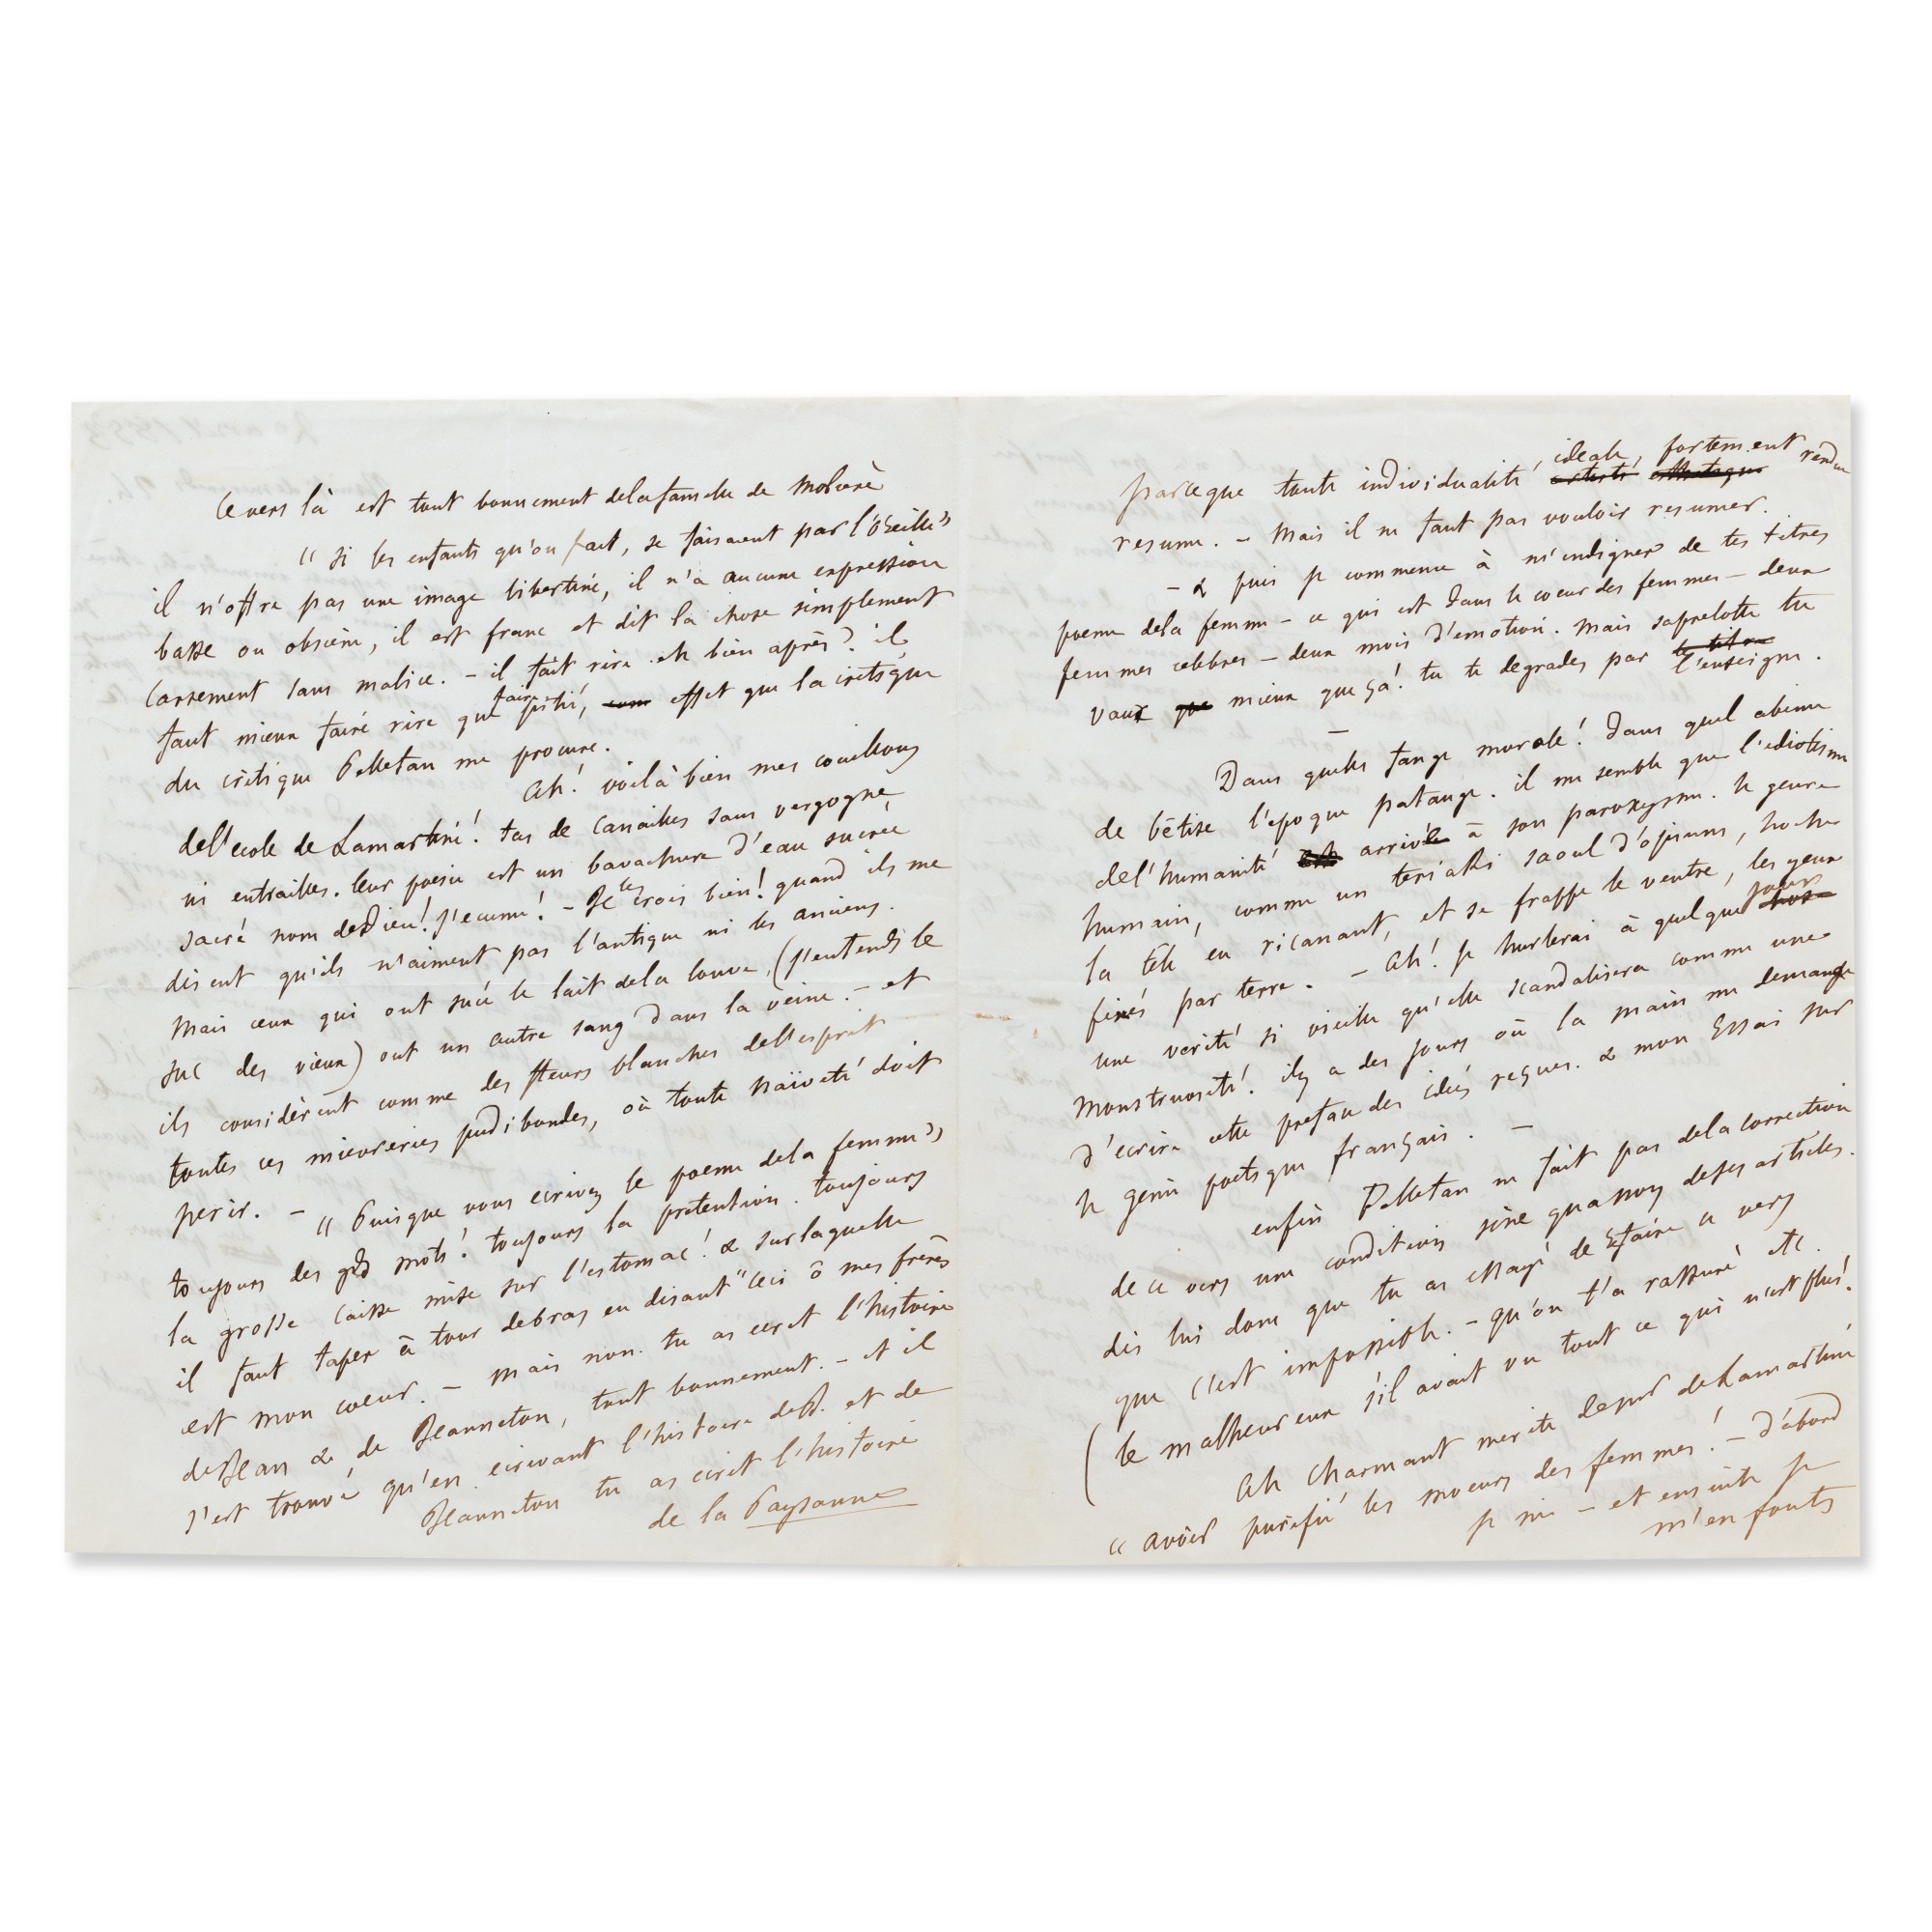 Ce vers là est tout bonnement de la famille de Molière
« si les enfants qu'on fait, se faisaient par l'oreille »
il n'offre pas une image libertine, il n'a aucune expression
basse ou obscène, il est franc et dit la chose simplement
carrement sans malice. – il fait rire. eh bien après? il
faut mieux faire rire que faire pitié, effet que la critique
du critique Pelletan me procure.
Ah! voilà bien mes couillons
de l'ecole de Lamartine! tas de canailles sans vergogne,
ni entrailles. leur poesie est un bavachure d'eau sucrée
sacré nom de Dieu! j'ecume! – Je les crois bien! quand ils me
disent qu'ils n'aiment pas l'antique ni les anciens.
mais ceux qui ont sucé le lait de la louve, (j'entends le
suc des vieux) ont un autre sang dans la veine. – et
ils considèrent comme des fleurs blanches de l'esprit
toutes ces mievreries pudibondes, où toute naïveté doit
perir. – « Puisque vous ecrivez le poeme de la femme »
toujours des gds mots! toujours la pretention. toujours
la grosse caisse mise sur l'estomac! & sur laquelle
il faut taper à tour de bras en disant "ceci ô mes frères
est mon coeur. – mais non. tu as ecrit l'histoire
de Jean & de Jeanneton, tout bonnement. – et il
s'est trouvé qu'en ecrivant l'histoire de J. et de
Jeanneton tu as ecrit l'histoire
de la Paysanne
parceque toute individualité ideale, fortement rendue
resume. – mais il ne faut pas vouloir resumer.
– & puis je commence à m'indigner de tes titres
poeme de la femme – ce qui est dans le coeur des femmes – deux
femmes celebres – deux mois d'emotion. mais saprelotte tu
vaux mieux que ça! tu te degrades par le titre l'enseigne.
–
Dans quelle fange morale! dans quel abime
de bêtise l'epoque patauge. il me semble que l'idiotisme
de l'humanité arrive à son paroxysme. le genre
humain, comme un teriaki saoul d'opium, hoche
la tête en ricanant, et se frappe le ventre, les yeux
fixés par terre. – Ah! je hurlerai à quelque jour
une verité si vieille qu'elle scandalisera comme une
monstruosité. il y a des jours où la main me demange
d'ecrire cette preface des idées reçues. & mon Essai sur
le genie poetique français. –
enfin Pelletan ne fait pas de la correction
de ce vers une condition sine qua non de ses articles.
dis lui donc que tu as essayé de refaire ce vers
que c'est impossible. – qu'on t'a rassuré etc.
(le malheureux s'il avait vu tout ce qui n'est plus!
Ah charmant merite de Lamartine
« avoir purifié les moeurs des femmes! – d'abord
je nie – et ensuite je
m'en fouts